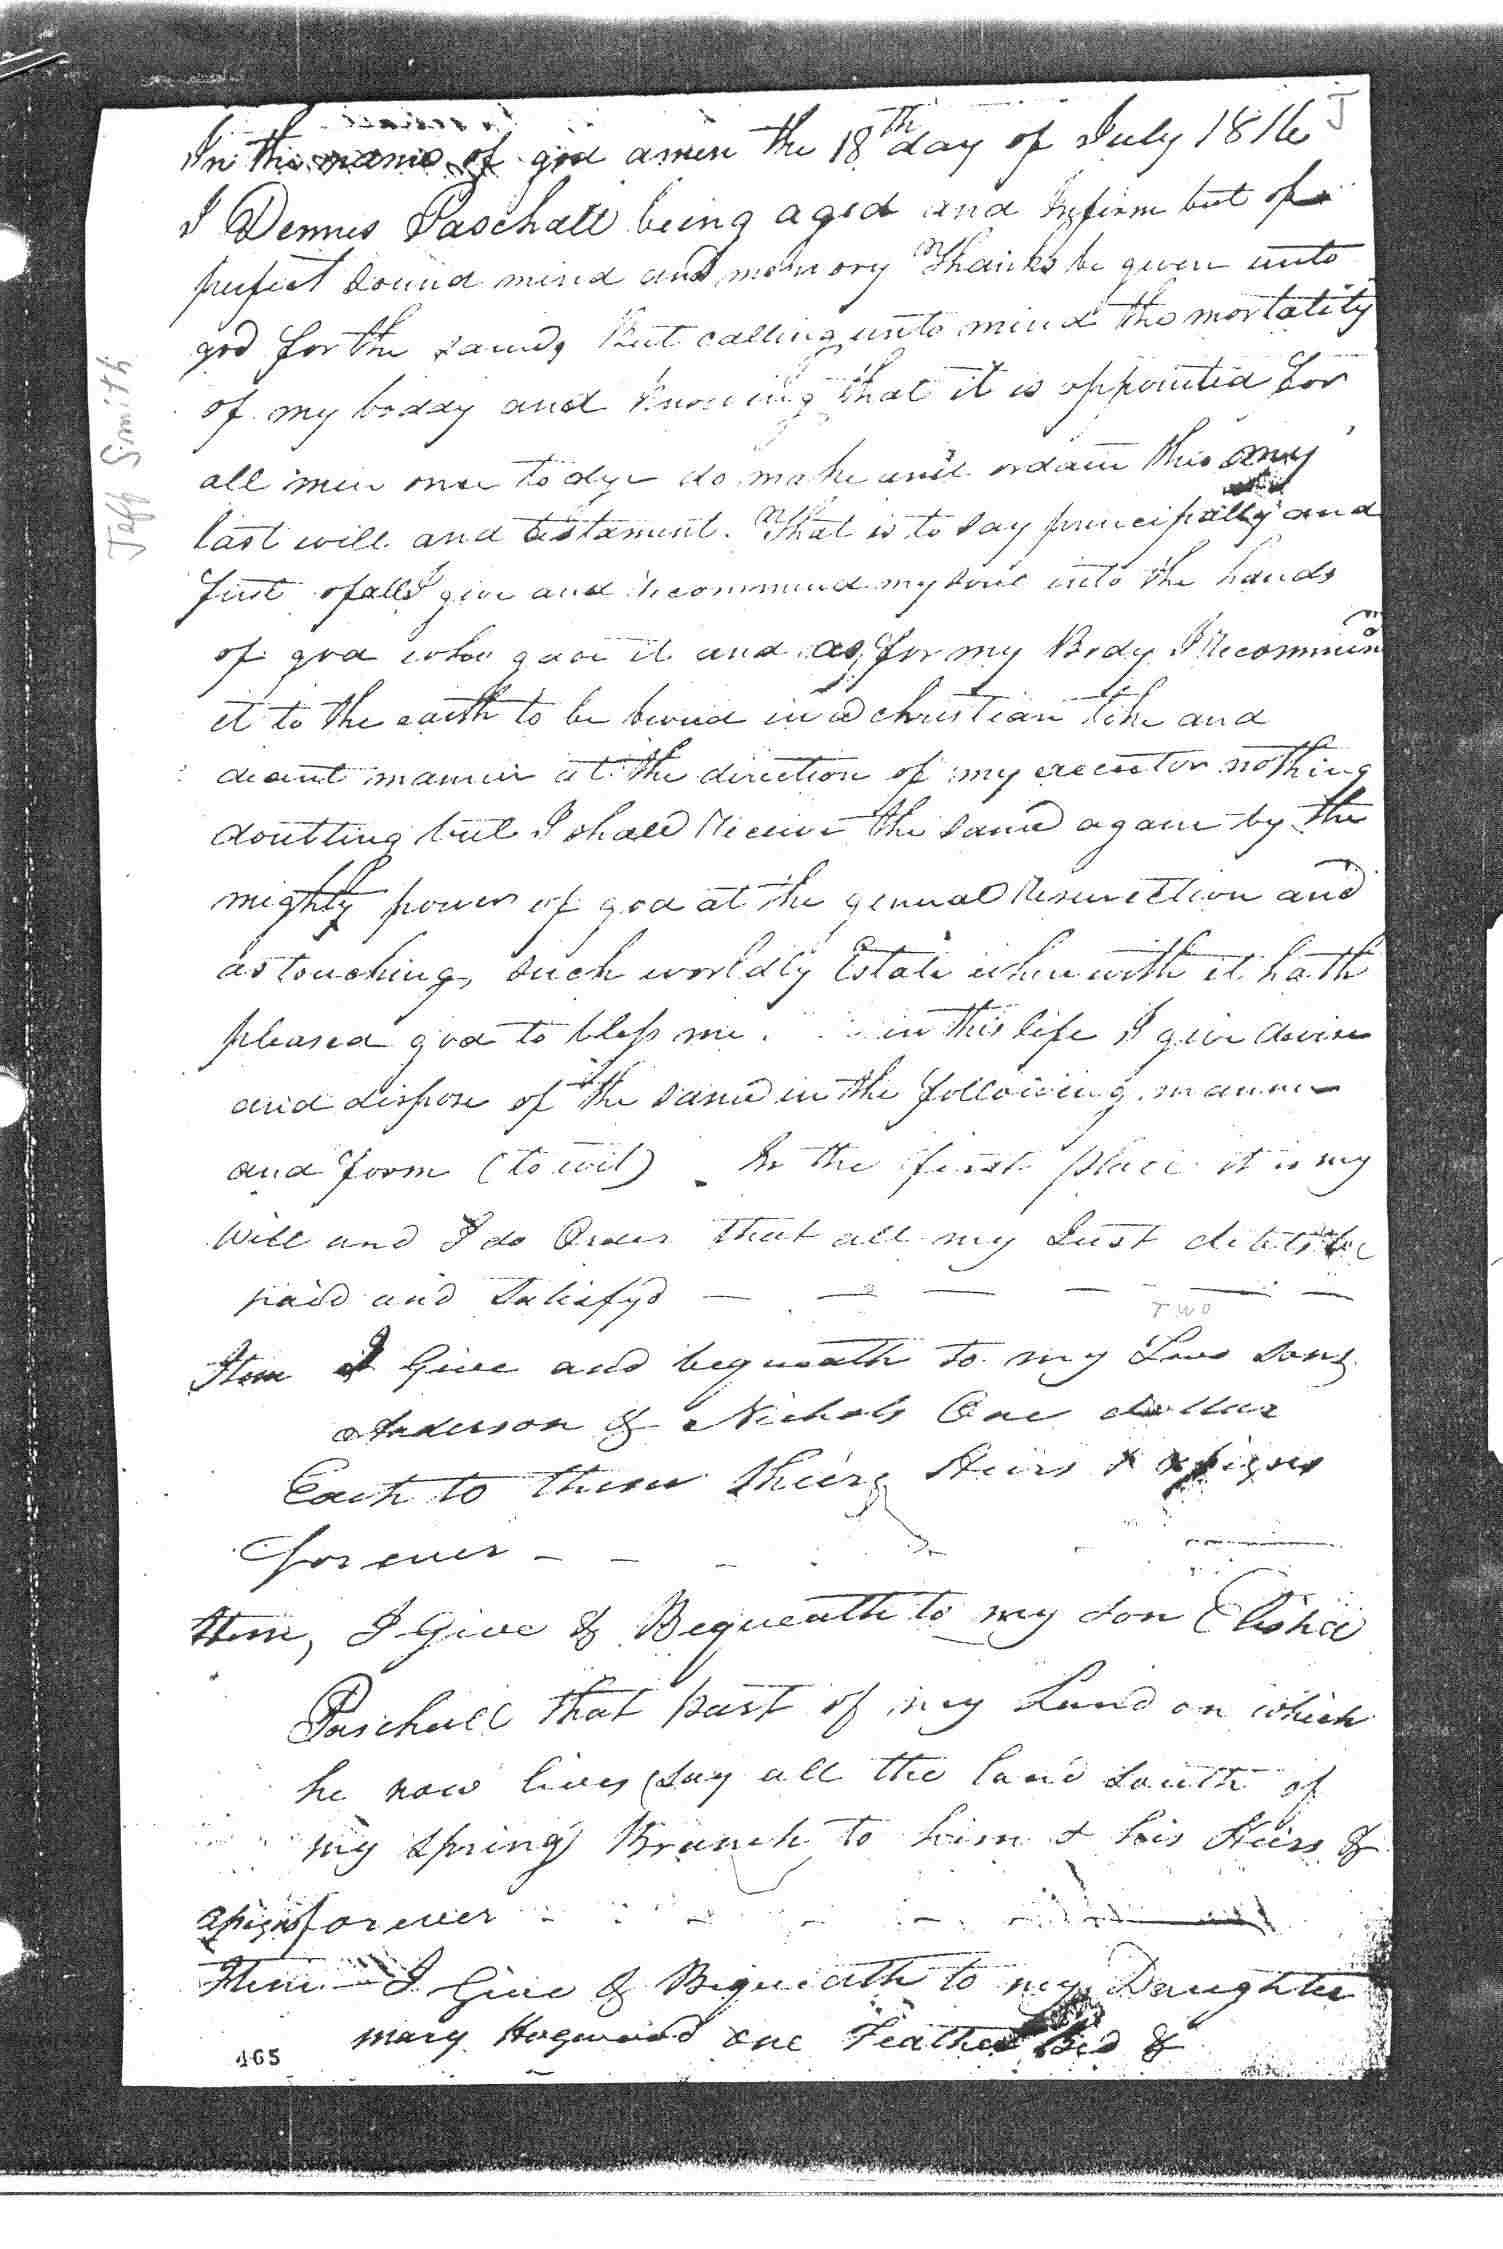 J
In the name of god amen the 18th day of July 1816
I Dennis Paschall being aged and Infirm but of
perfect sound mind and memory Thanks be given unto
god for the same, But calling unto mind the mortality
of my boddy and knowing that it is appointed for
all men once to dye do make and ordain this my
last will and testament. That is to say principally and
first of all I give and recommend my soul into the hands
of god who gave it and as for my Body I Recommen
it to the earth to be buried in a christian like and
decent manner at the direction of my executor nothing
doutting but I shall Receive the same again by the
mighty power of god at the general Resurection and
as touching such worldly Estate wherewith it hath
pleased god to bless me. in this life I give devise
and dispose of the same in the following manner
and form (to wit). In the first place it is my
Will and I do Order that all my Just debts be
paid and Satisfyd
TWO
Item I Give and bequeath to my Two sons
Anderson & Nichols One dollar
Each to them their Heirs & assigns
forever
Item, I Give & Bequeath to my son Elisha
Paschall that part of my Land on which
he now lives (say all the land south of
my spring Branch) to him & his Heirs &
assigns forever
Item - I Give & Bequeath to my Daughter
mary Hogwood one Feather Bed &
465
Jeff Smith